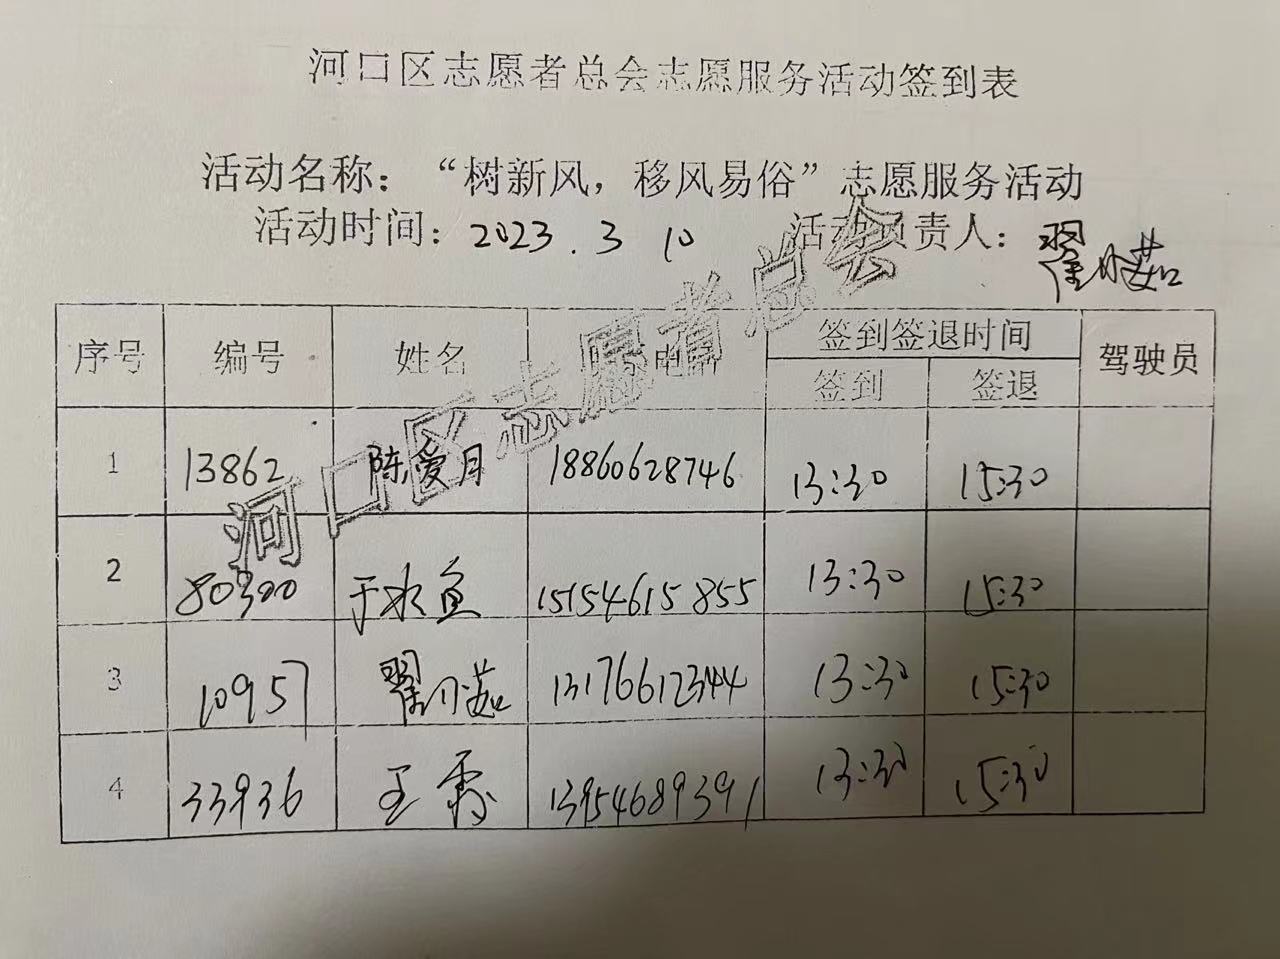 河口区志愿者总会志愿服务活动签到表
活动名称：“树新风，移风易俗”志愿服务活动
活动时间：2023.3 10 活动负责人：翟川茹
序号 编号 姓名 电话 签到签退时间 驾驶员
签到 签退
1 13862 陈爱月 18860628746 13:30 15:30
2 80300 于水鱼 15154615855 13:30 15:30
3 10957 翟川茹 13176612344 13:30 15:30
4 33936 王霖 13954689391 13:30 15:30
河口区志愿者总会